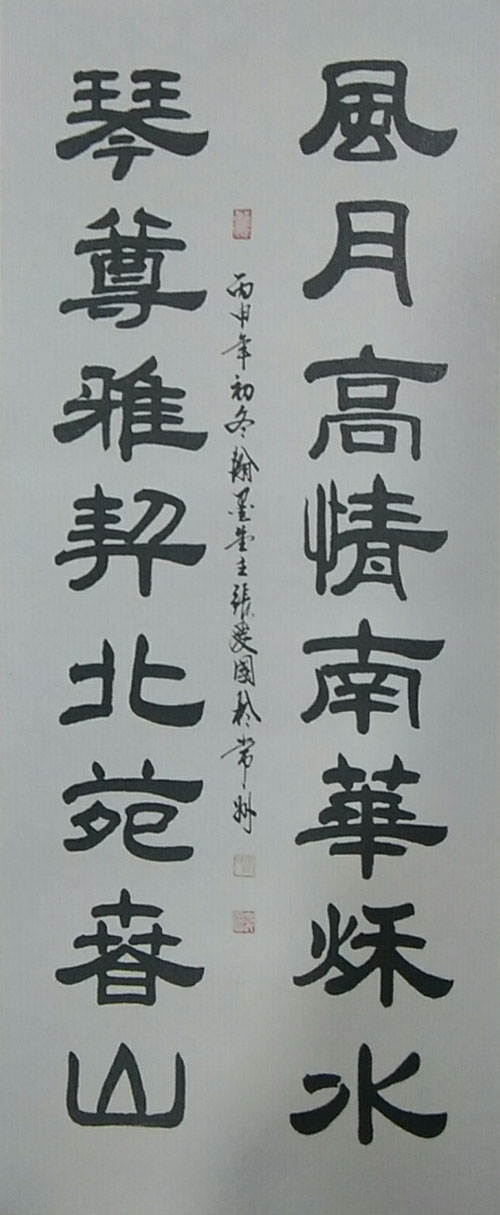 風月高情南華秌水
琴尊雅契北苑春山
丙申年初冬翰墨堂主張爱國於常州